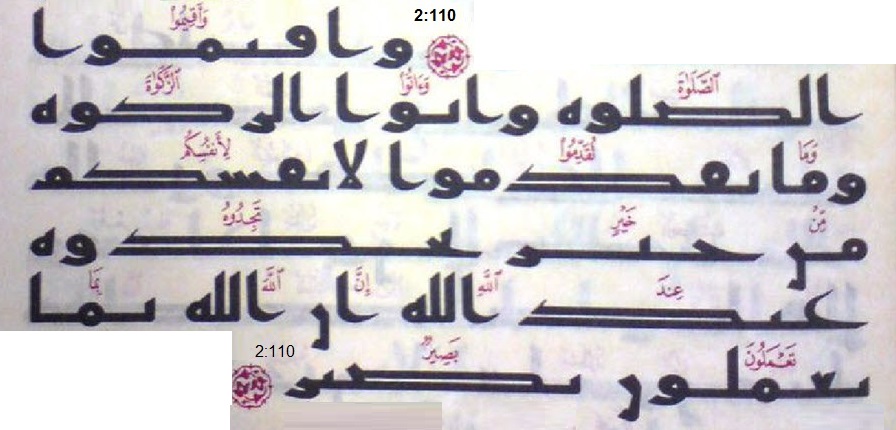 2:110
وَأَقِيمُوا
واڡٮموا
ٱلصَّلَوٰةَ وَءَاتُوا ٱلزَّكَوٰةَ
الصلوه واٮوا الركوه
وَمَا تُقَدِّمُوا لِأَنفُسِكُم
وما ٮڡدموا لاٮڡسكم
مِّنْ خَيْرٍ تَجِدُوهُ
مں حٮر ٮحدوه
عِندَ ٱللَّهِ إِنَّ ٱللَّهَ بِمَا
عٮد الله اں الله ٮما
تَعْمَلُونَ بَصِيرٌ
ٮعملوں ٮصٮر
2:110